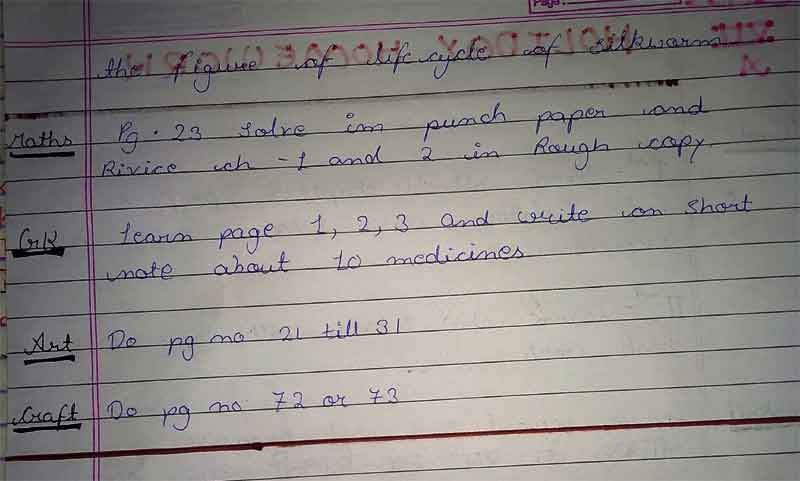 Page:
the figure of life cycle of silkworm
Maths Pg. 23 Solve im punch paper and
Rivice ch - 1 and 2 in Rough copy.
G.K learn page 1, 2, 3 and write on short
note about 10 medicines
Art Do pg no 21 till 31
Craft Do pg no 72 or 73